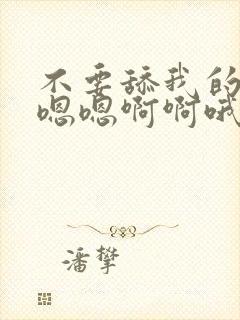 不要舔我的
嗯嗯啊啊哦
潘攀